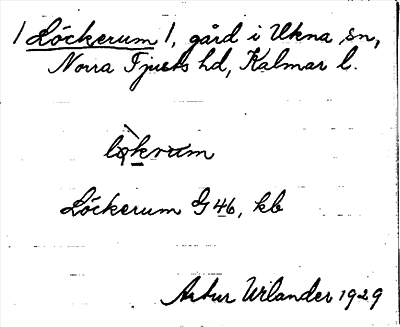 /Löckerum/, gård i Ukna sn,
Norra Tjusts hd, Kalmar l.
Löckerum G 46, kb
Artur Wilander 1929